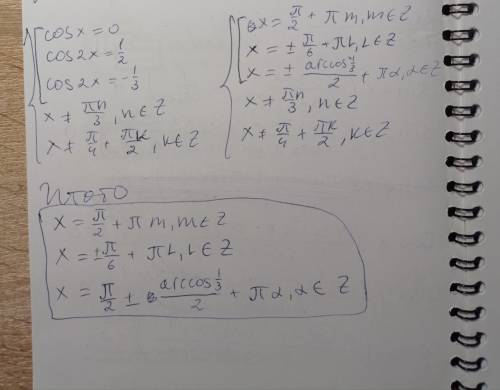 cos x = 0
cos 2x = 1/2
cos 2x = -1/3
x ≠ πn/3, n ∈ Z
x ≠ π/4 + πk/2, k ∈ Z
x = π/2 + πm, m ∈ Z
x = ± π/6 + πL, L ∈ Z
x = ± arccos /2 + πα, α ∈ Z
x ≠ πn/3, n ∈ Z
x ≠ π/4 + πk/2, k ∈ Z
Итого
x = π/2 + πm, m ∈ Z
x = ±π/6 + πL, L ∈ Z
x = π/2 ± arccos 1/3 /2 + πα, α ∈ Z